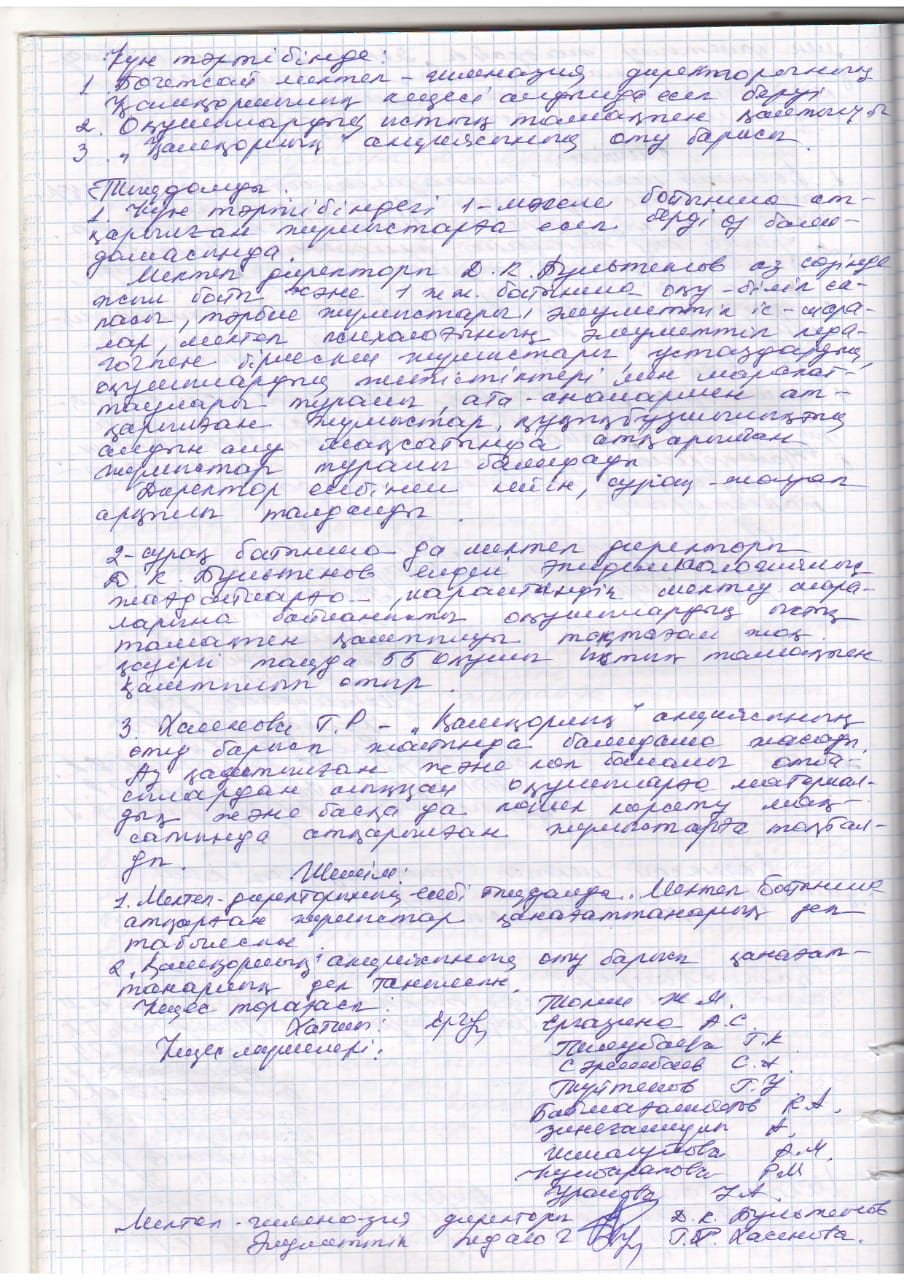 Күн тәртібінде:
1. Богетсай мектеп-гимназия директорының
Қамқоршылық кеңесі алдында есеп беруі
2. Оқушылардың ыстық тамақпен қамтылуы
3. „Қамқорлық" акциясының өту барысы.
Тыңдалды.
1. Күн тәртібіндегі 1-мәселе бойынша ат-
қарылған жұмыстарға есеп берді өз баян-
дамасында.
Мектеп директоры Д.К. Бультенов өз сөзінде
жыл бойы және 1 ж.ж. бойынша оқу-білім са-
пасы, тәрбие жұмыстары, әлеуметтік іс-шара-
лар, мектеп психологының әлеуметтік педа-
гогпен бірлескен жұмыстары, ұстаздардың,
оқушылардың жетістіктері мен марапат-
таулары туралы, ата-аналармен ат-
қарылған жұмыстар, құқықбұзушылықтың
алдын алу мақсатында атқарылған
жұмыстар туралы баяндады
Директор есебінен кейін, сұрақ-жауап
арқылы талданды.
2-сұрақ бойынша да мектеп директоры
Д.К. Бультенов елдегі эпидемиологиялық
жағдайларға, карантиндік шектеу шара-
ларына байланысты оқушылардың ыстық
тамақпен қамтылуы тоқтаған жоқ.
Қазіргі таңда 55 оқушы ыстық тамақпен
қамтылып отыр.
3. Хасенова Г.Р - „Қамқорлық" акциясының
өту барысы жайында баяндама жасады.
Аз қамтылған және көп балалы отба-
сылардан шыққан оқушыларға материал-
дық және басқа да көмек көрсету мақ-
сатында атқарылған жұмыстарға тоқтал-
ды.
Шешім:
1. Мектеп-директорының есебі тыңдалды. Мектеп бойынша
атқарған жұмыстар қанағаттанарлық деп
табылсын.
2. „Қамқорлық" акциясының өту барысы қанағат-
танарлық деп танылсын.
Кеңес төрағасы: Ж.М.
Хатшы: Ергазина А.С.
Кеңес мүшелері: Г.К.
С.А.
Г.У
К.А.
А.
А.М.
Р.М
Мектеп-гимназия директоры Д.К. Бультенов
Әлеуметтік педагог Г.Р. Хасенова.